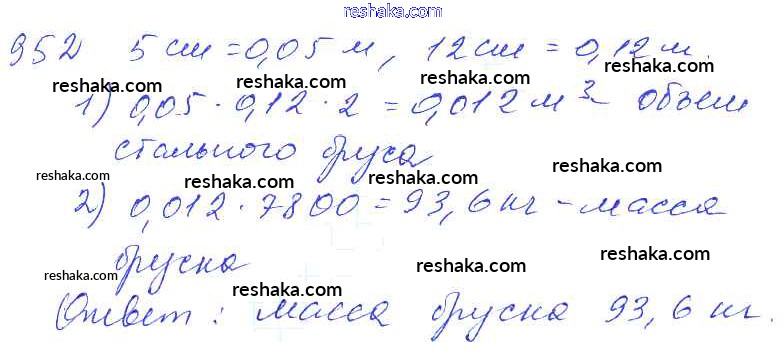 reshaka.com
952 5 см = 0,05 м, 12 см = 0,12 м.
reshaka.com reshaka.com reshaka.com
1) 0,05 · 0,12 · 2 = 0,012 м³ – объем
reshaka.com reshaka.com reshaka.com
стального бруса
reshaka.com reshaka.com reshaka.com
2) 0,012 · 7800 = 93,6 кг – масса
reshaka.com reshaka.com reshaka.com
бруска
reshaka.com reshaka.com reshaka.com
Ответ: масса бруска 93,6 кг.